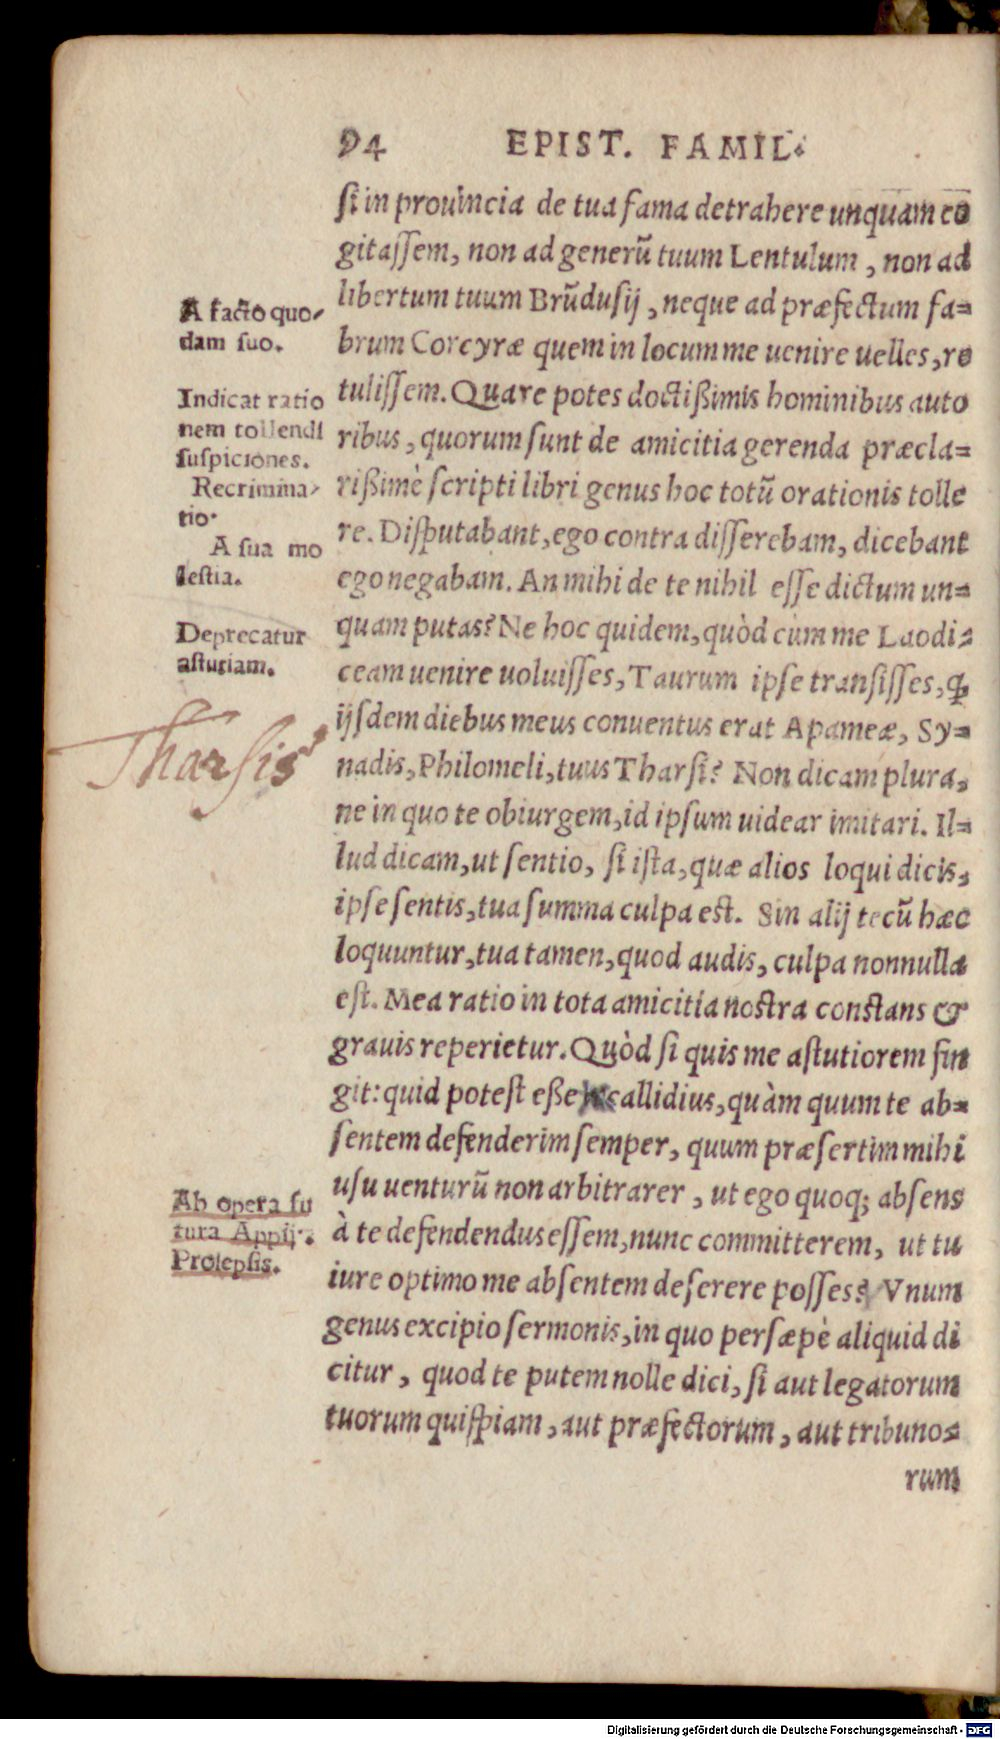 94 EPIST. FAMIL.
ſi in prouincia de tua fama detrahere unquam co
gitaſſem, non ad generū tuum Lentulum, non ad
libertum tuum Brūduſij, neque ad præfectum fa=
brum Corcyræ quem in locum me uenire uelles, re
tuliſſem. Quare potes doctißimis hominibus auto
ribus, quorum ſunt de amicitia gerenda præcla=
rißimè ſcripti libri genus hoc totū orationis tolle
re. Diſputabant, ego contra diſſerebam, dicebant
ego negabam. An mihi de te nihil eſſe dictum un=
quam putas? Ne hoc quidem, quòd cùm me Laodi=
ceam uenire uoluiſſes, Taurum ipſe tranſiſſes, ꝙ
ijſdem diebus meus conuentus erat Apameæ, Sy=
nadis, Philomeli, tuus Tharſi? Non dicam plura,
ne in quo te obiurgem, id ipſum uidear imitari. Il=
lud dicam, ut ſentio, ſi iſta, quæ alios loqui dicis,
ipſe ſentis, tua ſumma culpa eſt. Sin alij tecū hæc
loquuntur, tua tamen, quod audis, culpa nonnulla
eſt. Mea ratio in tota amicitia noſtra conſtans &
grauis reperietur. Quòd ſi quis me aſtutiorem fin
git: quid poteſt eße callidius, quàm quum te ab=
ſentem defenderim ſemper, quum præſertim mihi
uſu uenturū non arbitrarer, ut ego quoq; abſens
à te defendendus eſſem, nunc committerem, ut tu
iure optimo me abſentem deſerere poſſes? Vnum
genus excipio ſermonis, in quo perſæpè aliquid di
citur, quod te putem nolle dici, ſi aut legatorum
tuorum quiſpiam, aut præfectorum, aut tribuno=
rum
A facto quo-
dam ſuo.
Indicat ratio
nem tollendi
ſuſpiciones.
Recrimina-
tio.
A ſua mo
leſtia.
Deprecatur
aſtutiam.
Tharſis
Ab opera fu
tura Appij.
Prolepſis.
Digitalisierung gefördert durch die Deutsche Forschungsgemeinschaft - DFG